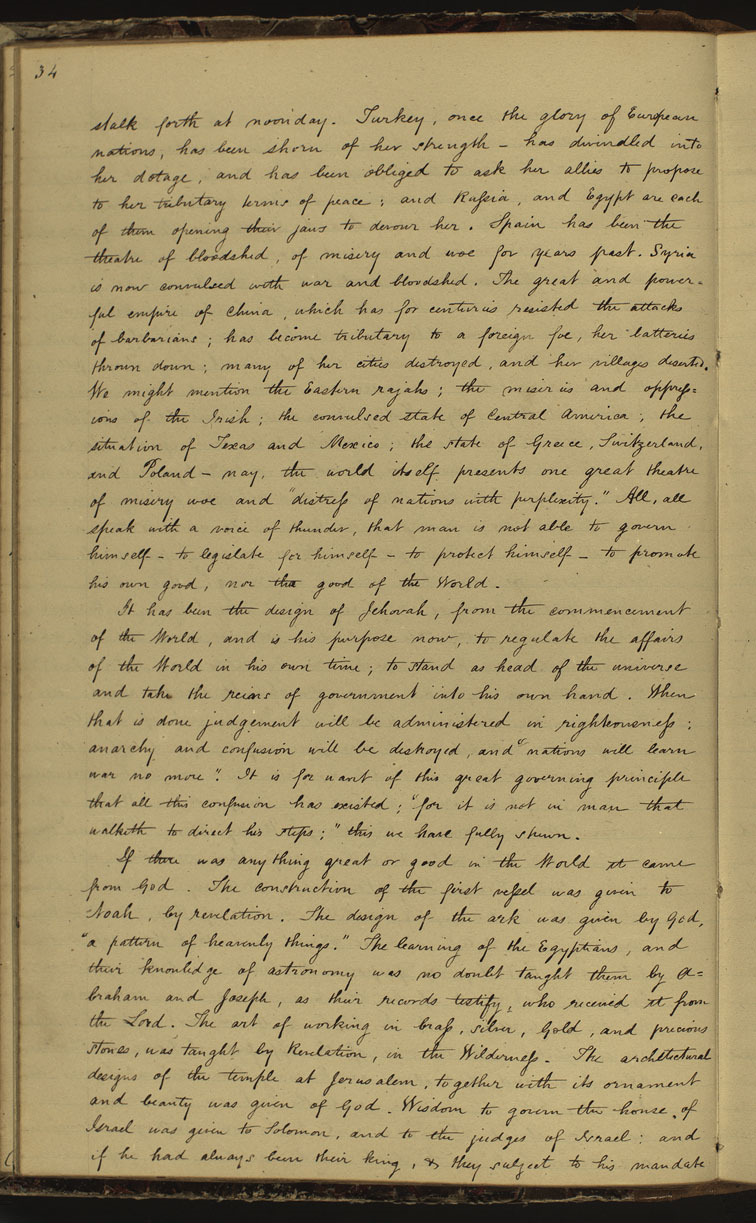 34
stalk forth at noonday. Turkey, once the glory of European
nations, has been shorn of her strength – has dwindled into
her dotage, and has been obliged to ask her allies to propose
to her tributary terms of peace; and Russia, and Egypt are each
of them opening their jaws to devour her. Spain has been the
theatre of bloodshed, of misery and woe for years past. Syria
is now convulsed with war and bloodshed. The great and power=
ful empire of China, which has for centuries resisted the attacks
of barbarians; has become tributary to a foreign foe, her batteries
thrown down; many of her cities destroyed, and her villages deserted.
We might mention the Eastern rajahs; the miseries and oppress=
ions of the Irish; the convulsed state of Central America; the
situation of Texas and Mexico; the state of Greece, Switzerland,
and Poland – nay, the world itself presents one great theatre
of misery woe and "distress of nations with perplexity." All, all
speak with a voice of thunder, that man is not able to govern
himself – to legislate for himself – to protect himself – to promote
his own good, nor the good of the World.
It has been the design of Jehovah, from the commencement
of the World, and is his purpose now, to regulate the affairs
of the World in his own time; to stand as head of the universe
and take the reins of government into his own hand. When
that is done judgement will be administered in righteousness;
anarchy and confusion will be destroyed, and "nations will learn
war no more". It is for want of this great governing principle
that all this confusion has existed; "for it is not in man that
walketh to direct his steps;" this we have fully shewn.
If there was any thing great or good in the World it came
from God. The construction of the first vessel was given to
Noah, by revelation. The design of the ark was given by God,
"a pattern of heavenly things." The learning of the Egyptians, and
their knowledge of astronomy was no doubt taught them by A=
braham and Joseph, as their records testify, who received it from
the Lord. The art of working in brass, silver, gold, and precious
stones, was taught by Revelation, in the Wilderness. The architectural
designs of the temple at Jerusalem, together with its ornament
and beauty was given of God. Wisdom to govern the house of
Israel was given to Solomon, and to the judges of Israel: and
if he had always been their king, & they subject to his mandate